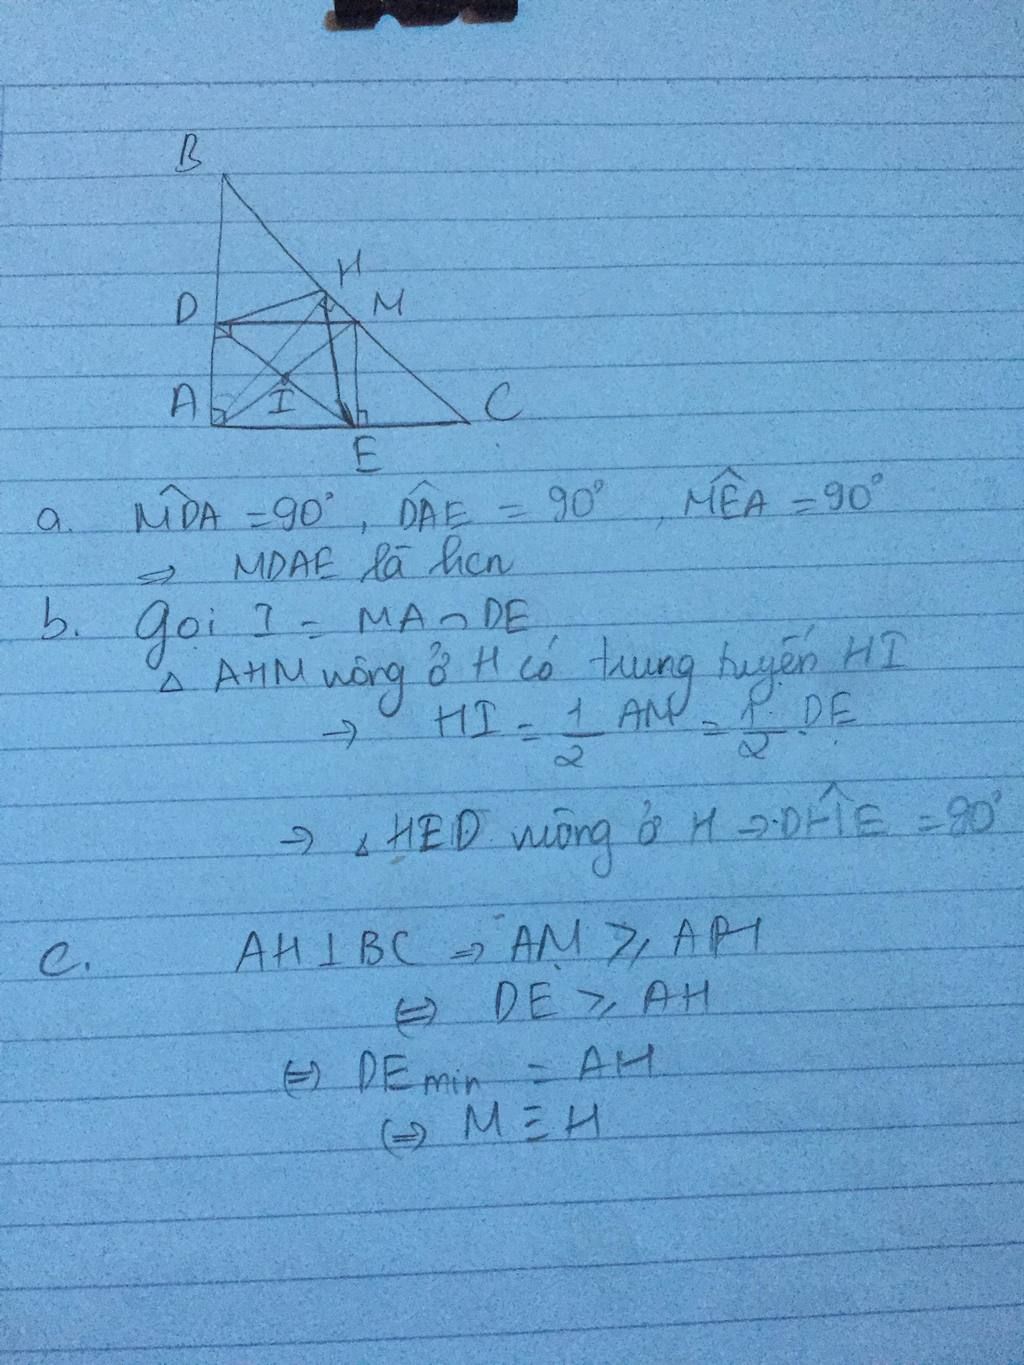 B
H
D
M
A
I
C
E
a. MD̂A = 90°, DÂE = 90°, MÊA = 90°
⇒ MDAE là hcn
b. Gọi I = MA ∩ DE
△ AHM vuông ở H có trung tuyến HI
→ HI = 1/2 AM = 1/2 DE
⇒ △ HED vuông ở H ⇒ DĤE = 90°
c. AH ⊥ BC ⇒ AM ≥ AH
⇔ DE ≥ AH
⇔ DE min = AH
⇔ M ≡ H